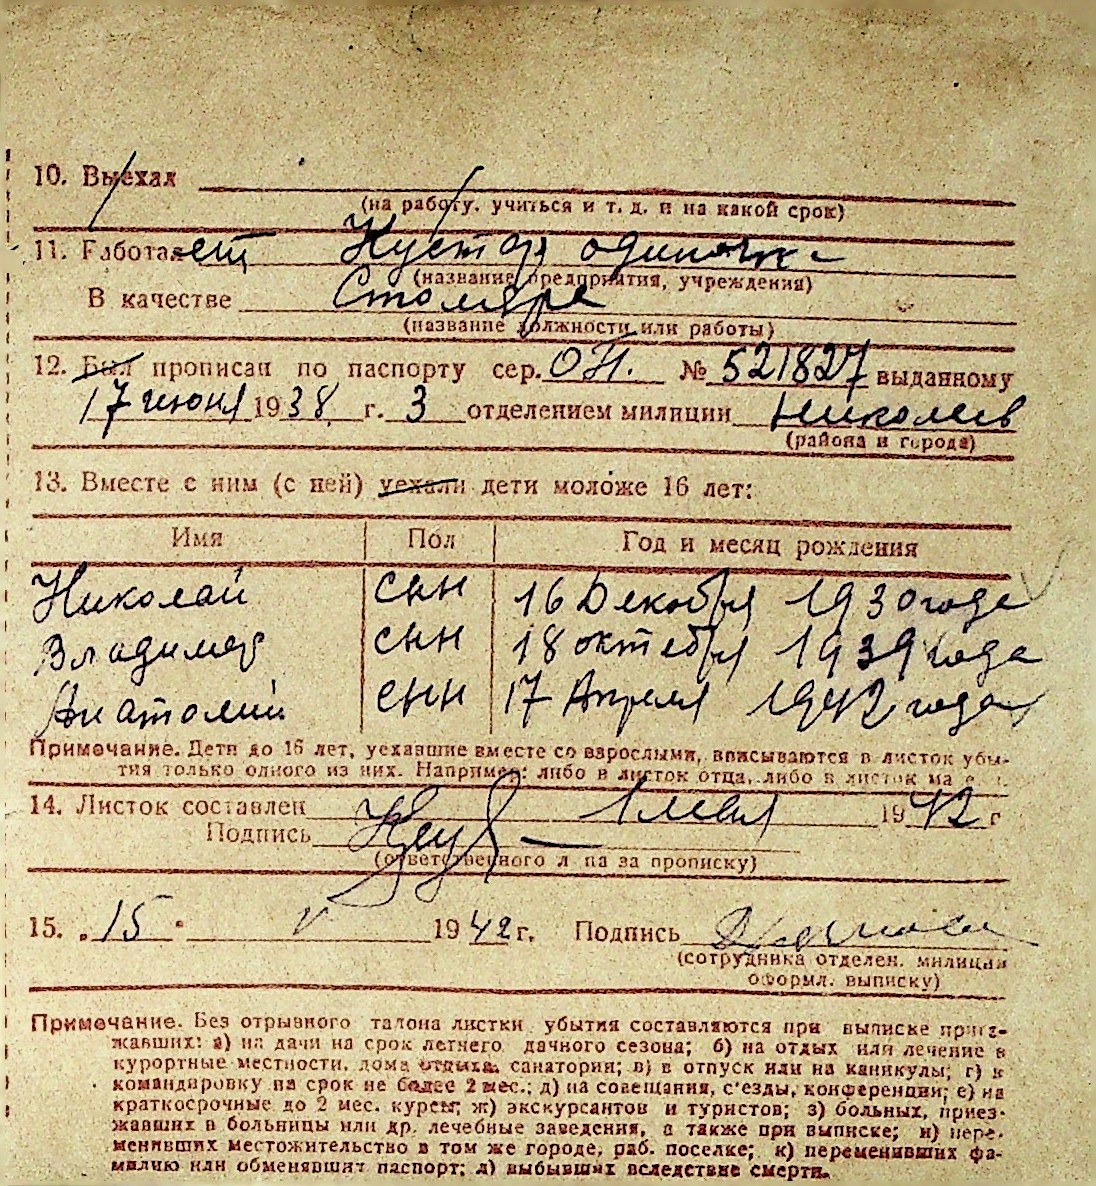 10. Выехал
(на работу, учиться и т. д. и на какой срок)
11. Работает Кустар одиночка
(название предприятия, учреждения)
В качестве Столяра
(название должности или работы)
12. Был прописан по паспорту сер. ОП. № 521827 выданному
17 июня 1938 г. 3 отделением милиции Николаев
(района и города)
13. Вместе с ним (с ней) уехали дети моложе 16 лет:
Имя Пол Год и месяц рождения
Николай сын 16 Декабря 1930 года
Владимер сын 18 октября 1939 года
Анатолий сын 17 Апреля 1942 года
Примечание. Дети до 16 лет, уехавшие вместе со взрослыми, вписываются в листок убы-
тия только одного из них. Например: либо в листок отца, либо в листок
14. Листок составлен 1 мая 1942 г
Подпись
(ответственного лица за прописку)
15. "15" V 1942 г. Подпись
(сотрудника отделен. милиции
оформл. выписку)
Примечание. Без отрывного талона листки убытия составляются при выписке приез-
жавших: а) на дачи на срок летнего дачного сезона; б) на отдых или лечение в
курортные местности, дома отдыха, санатории; в) в отпуск или на каникулы; г) в
командировку на срок не более 2 мес.; д) на совещания, с'езды, конференции; е) на
краткосрочные до 2 мес. курсы; ж) экскурсантов и туристов; з) больных, приез-
жавших в больницы или др. лечебные заведения, а также при выписке; и) пере-
менивших местожительство в том же городе, раб. поселке; к) переменивших фа-
милию или обменявших паспорт; л) выбывших вследствие смерти.